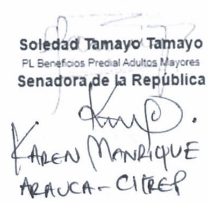 Soledad Tamayo Tamayo
PL Beneficios Predial Adultos Mayores
Senadora de la República
KAREN MANRIQUE
ARAUCA - CITREP